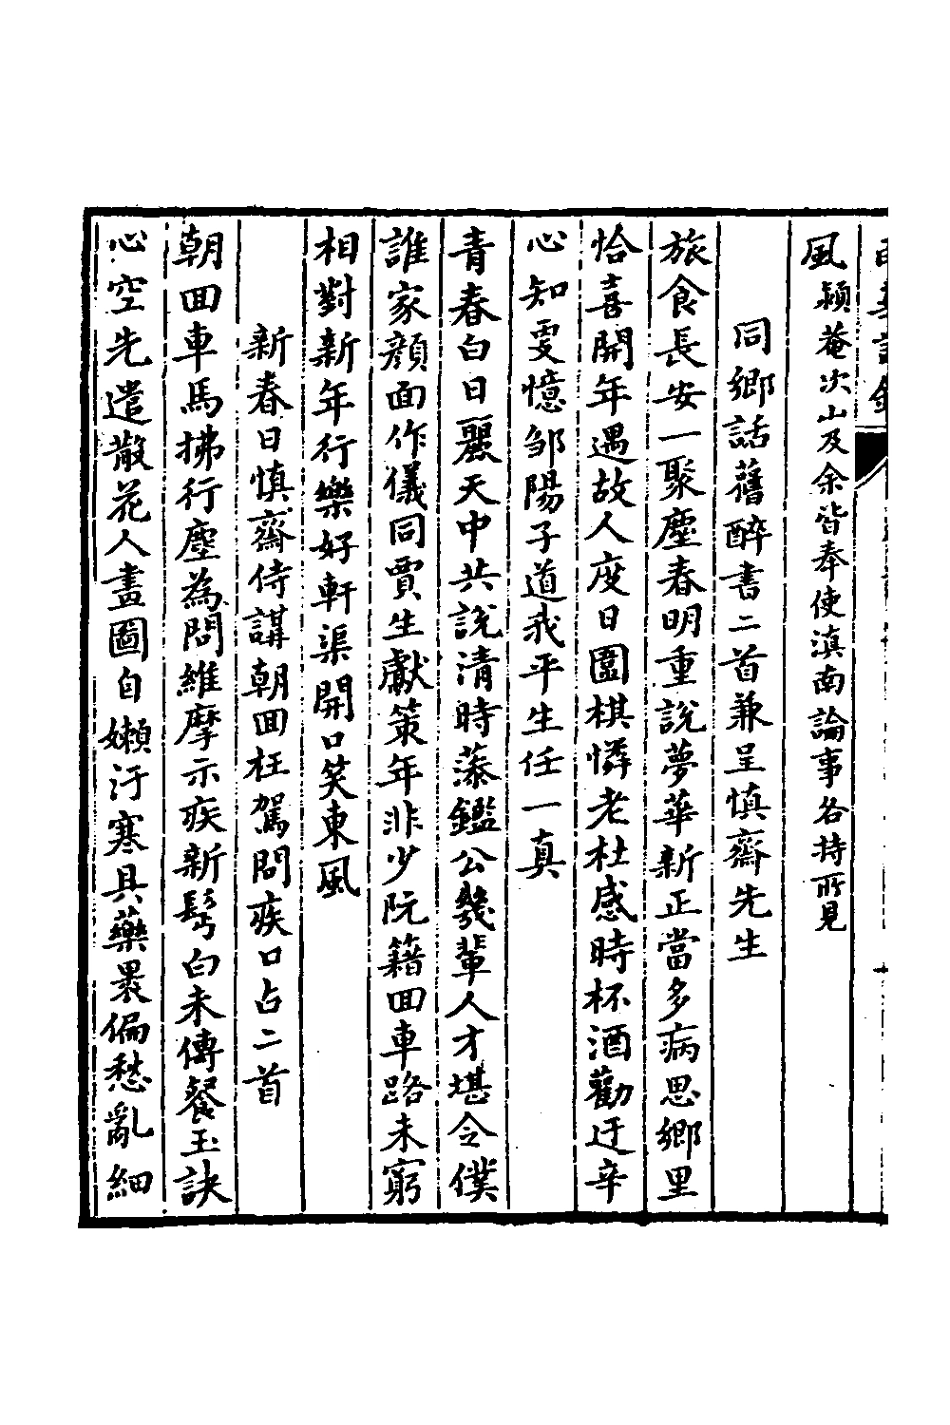 風潁菴次山及余皆奉使滇南論事各持所見
同鄉話舊醉書二首兼呈慎齋先生
旅食長安一聚塵春明重說夢華新正當多病思鄉里
恰喜開年遇故人度日圍棋憐老杜感時杯酒勸迂辛
心知雯憶鄒陽子道我平生任一真
青春白日麗天中共說清時藻鑑公幾輩人才堪令僕
誰家顔面作儀同賈生獻策年非少阮籍回車路未窮
相對新年行樂好軒渠開口笑東風
新春日慎齋侍講朝回枉駕問疾口占二首
朝回車馬拂行塵為問維摩示疾新鬢白未傳餐玉訣
心空先遣散花人畫圖自嬾汙寒具藥褁偏愁亂細